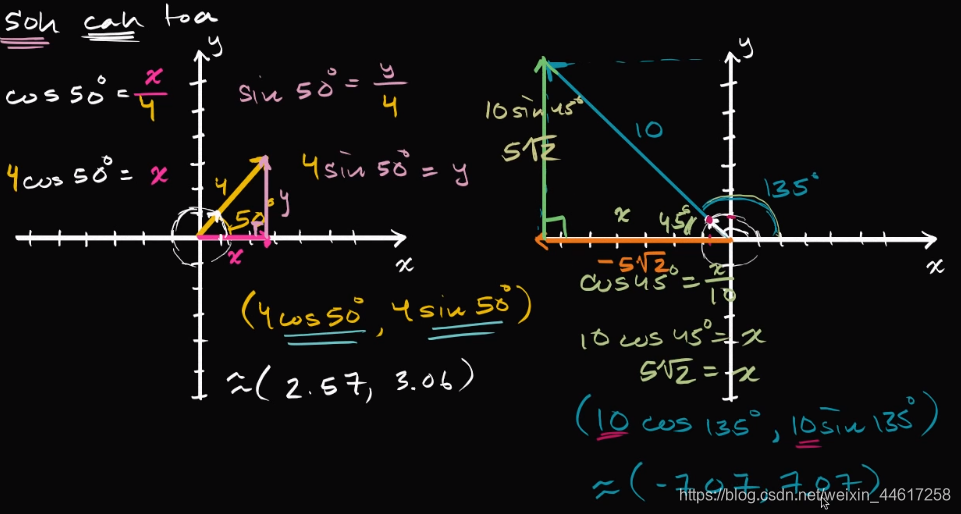 soh cah toa
y
cos 50° = x/4
sin 50° = y/4
4 cos 50° = x
4 sin 50° = y
4
50°
y
x
x
(4 cos 50°, 4 sin 50°)
≈ (2.57, 3.06)
y
10 sin 45°
5√2
10
135°
x
45°
x
-5√2
cos 45° = x/10
10 cos 45° = x
5√2 = x
(10 cos 135°, 10 sin 135°)
≈ (-7.07, 7.07)
https://blog.csdn.net/weixin_44617258